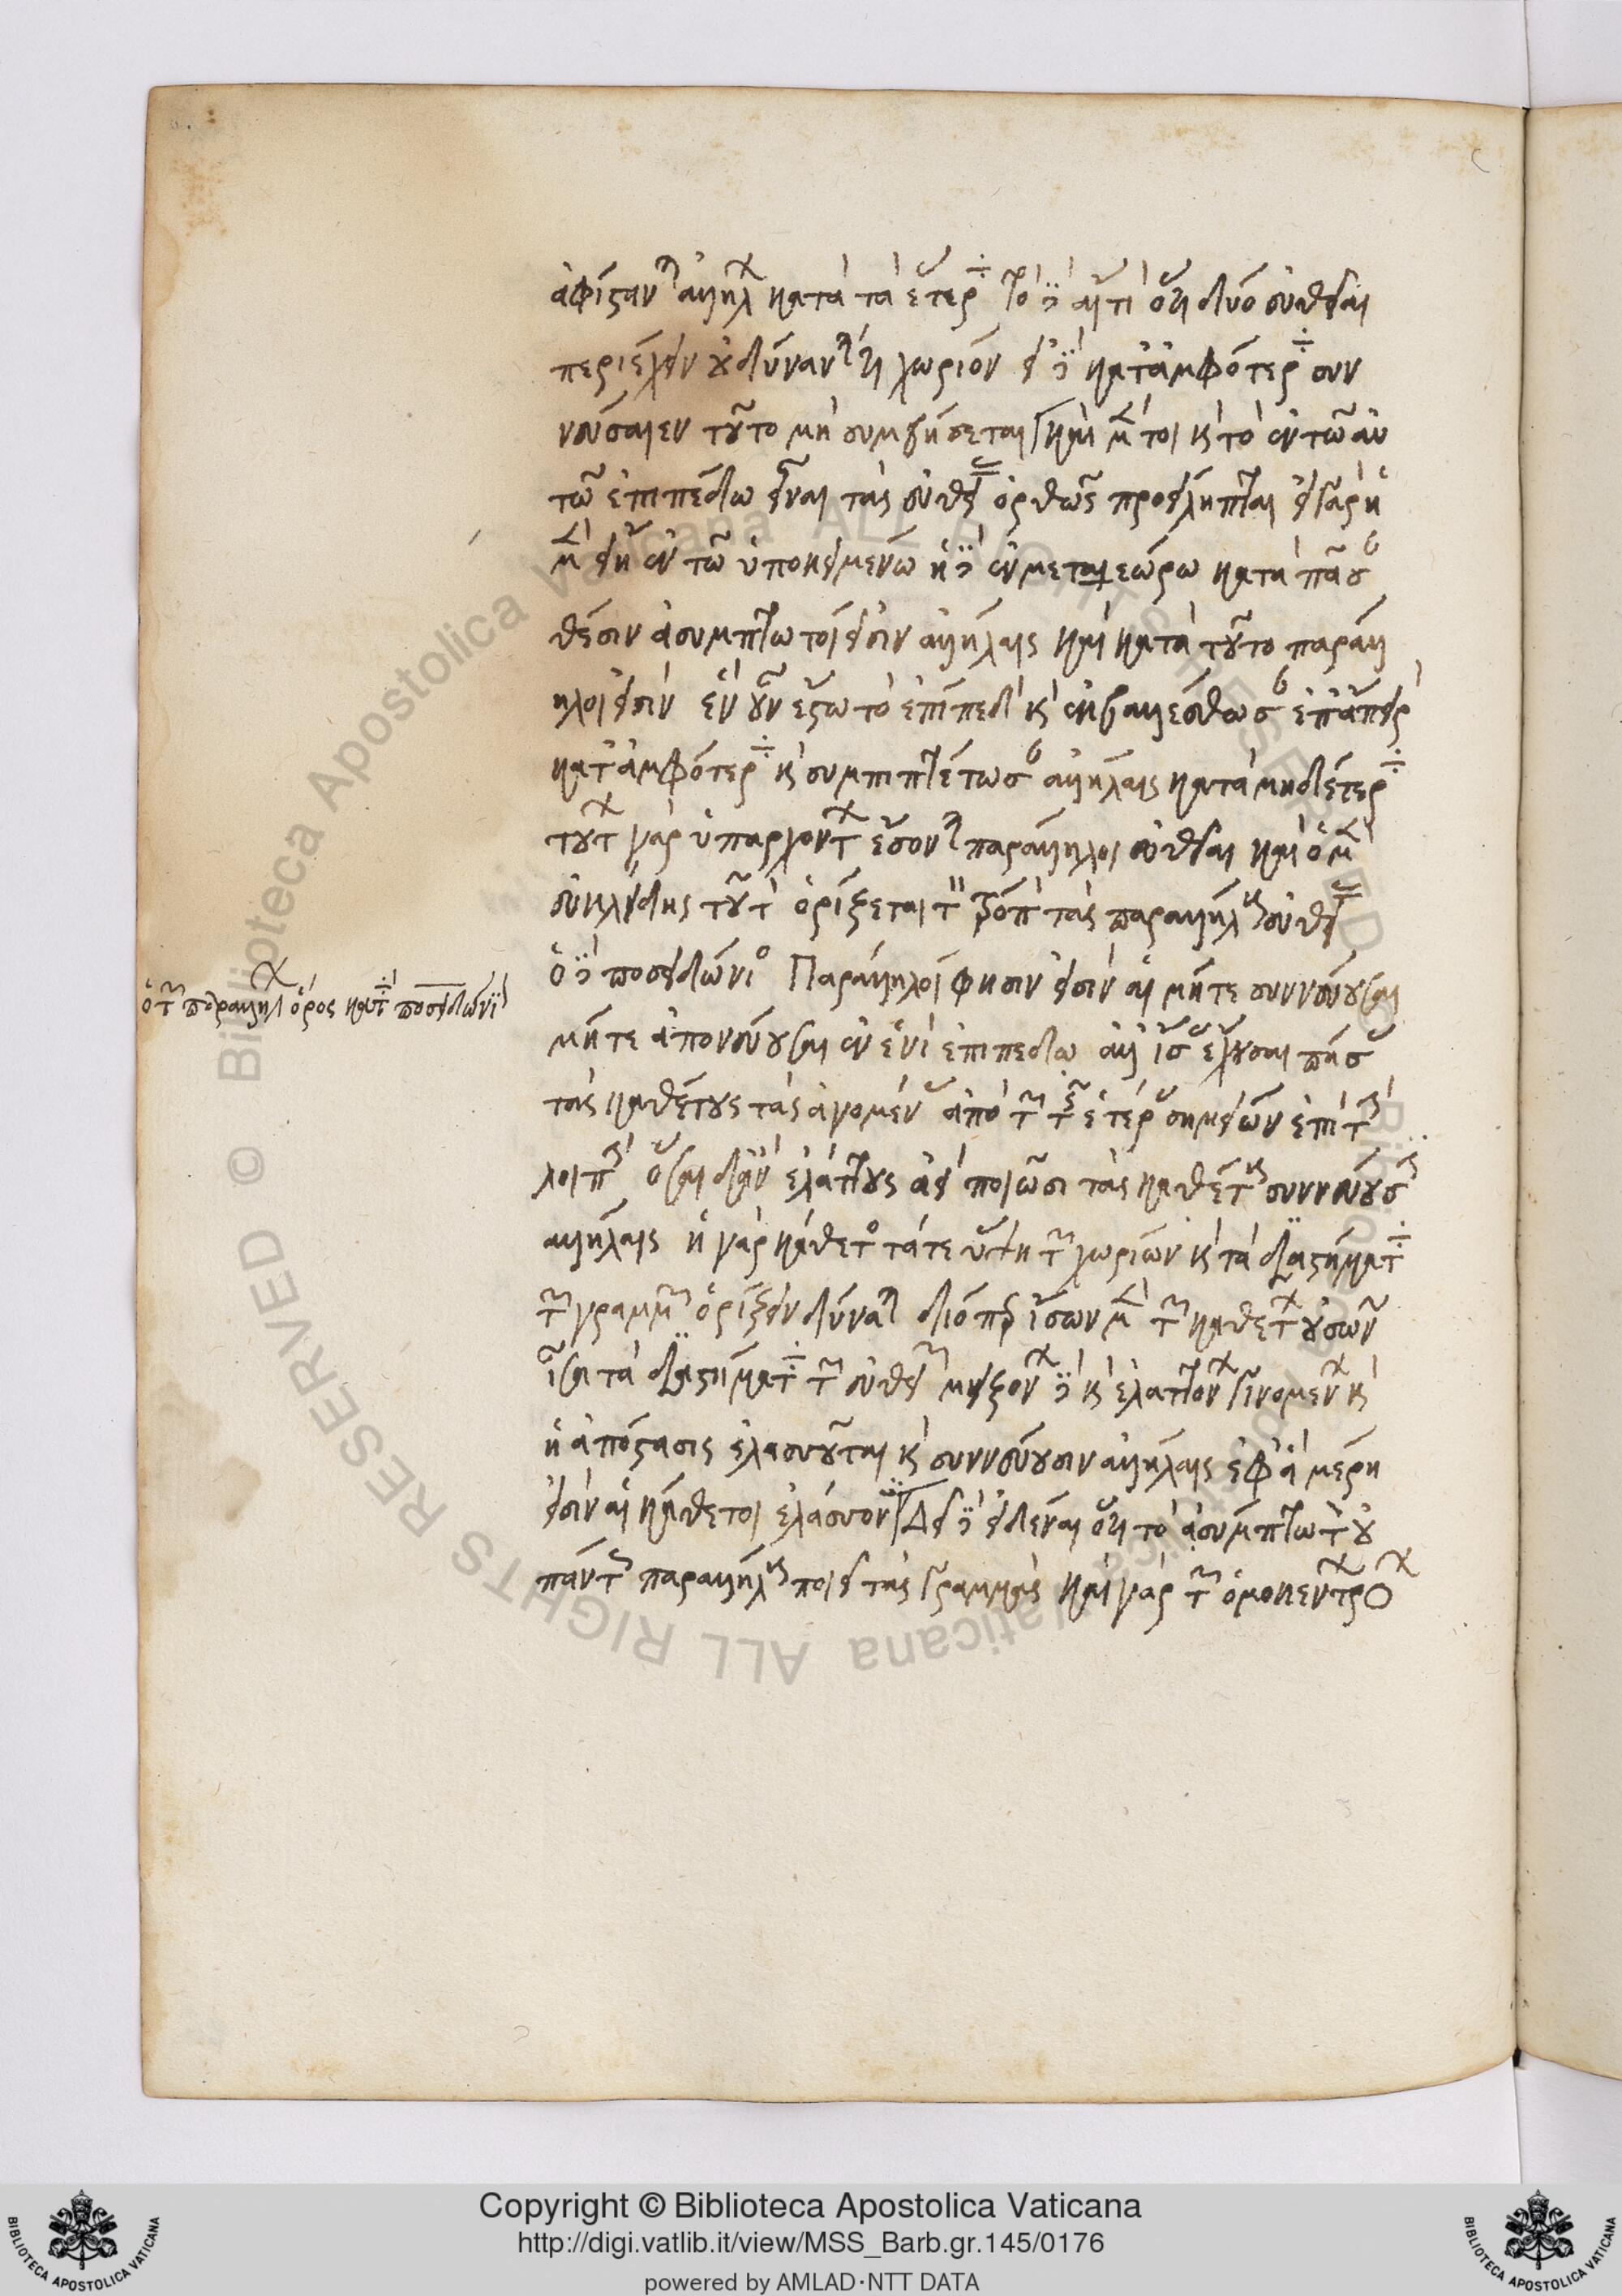 ἀφίσταντ ἀλλήλ κατὰ τὰ ἕτερ τὸ δ αἴτι ὅτι δύο εὐθεῖαι
περιέχειν οὐ δύνανται χωρίον εἰ δὲ κατ ἀμφότερ συν
νεύσαιεν τοῦτο μὴ συμβήσεται καὶ μέν τοι κ τὸ ἐν τῶ αὐ
τῶ ἐπιπέδω εἶναι τὰς εὐθεί ὀρθῶς προσείληπται εἰ γὰρ ἡ
μὲν εἴη ἐν τῶ ὑποκειμένω ἡ δὲ ἐν μετεώρω κατὰ πᾶσ
θέσιν ἀσυμπτωτοί εἰσιν ἀλλήλαις καὶ οὐ κατὰ τοῦτο παράλλ
ηλοι εἰσιν ἓν οὖν ἔστω τὸ ἐπίπεδ κ ἐκβαλλέσθωσ ἐπ ἄπειρ
κατ ἀμφότερ κ συμπιπτέτωσ ἀλλήλαις κατὰ μηδέτερ
τούτ γὰρ ὑπαρχόντ ἔσοντ παράλληλοι εὐθεῖαι καὶ ὁ μὲν
εὐκλείδης τοῦτ ὁρίζεται τ τρόπ τὰς παραλλήλ εὐθεί
ὁ δὲ ποσειδώνιο Παράλληλοί φησιν εἰσὶν αἱ μήτε συννεύουσαι
μήτε ἀπονεύουσαι ἐν ἑνὶ ἐπιπέδω ἀλλ ἴσ ἔχουσαι πάσ
τὰς καθέτους τὰς ἀγομέν ἀπὸ τ τ ἑτέρ σημείων ἐπὶ τ
λοιπ ὅσαι δ ἂν ἐλάττους ἀεὶ ποιῶσι τὰς καθέτ συννεύουσ
ἀλλήλαις ἡ γὰρ κάθετο τά τε ὕψη τ χωρίων κ τὰ διαστήματ
τ γραμμ ὁρίζειν δύνατ διόπερ ἴσων μὲν τ καθέτ οὐσῶν
ἴσα τὰ διαστήματ τ εὐθει μειζόν δὲ κ ἐλαττόν γινομέν κ
ἡ ἀπόστασις ἐλασσοῦται κ συννεύουσιν ἀλλήλαις ἐφ ἃ μέρη
εἰσὶν αἱ κάθετοι ἐλάσσον Δεῖ δὲ εἰδέναι ὅτι τὸ ἀσύμπτωτ οὐ
πάντ παραλλήλ ποιεῖ τὰς γραμμὰς καὶ γὰρ τ ὁμοκέντρ
ὁ τ παραλλήλ ὅρος κατ ποσειδώνι
Copyright © Biblioteca Apostolica Vaticana
http://digi.vatlib.it/view/MSS_Barb.gr.145/0176
powered by AMLAD·NTT DATA
BIBLIOTECA APOSTOLICA VATICANA
BIBLIOTECA APOSTOLICA VATICANA
Biblioteca Apostolica Vaticana ALL RIGHTS RESERVED ©